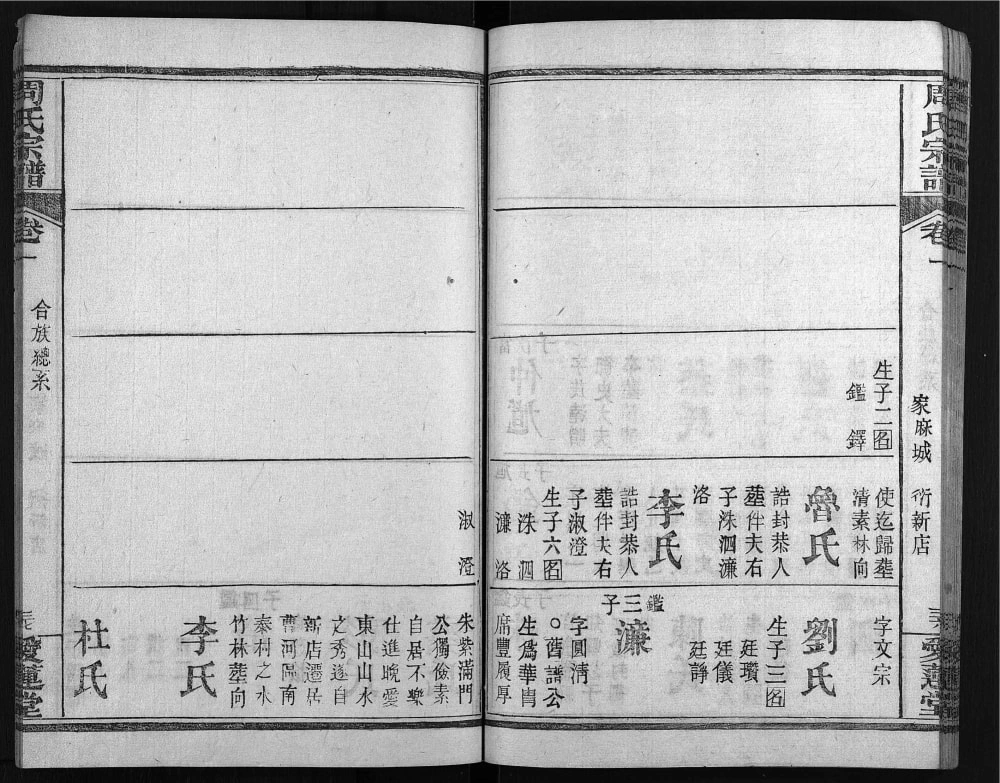 周氏宗譜
卷一
家麻城
衍新店
三十七
愛蓮堂
生子二图
鑑
鐸
使迄歸塟
清素林向
魯氏
誥封恭人
塟件夫右
子洙泗濂
洛
李氏
誥封恭人
塟件夫右
子淑澄
生子六图
洙
泗
濂
洛
字文宗
劉氏
生子三图
廷瓚
廷儀
廷靜
鑑三子
濂
字圓清
○舊譜公
生爲華胄
席豐履厚
淑
澄
朱紫滿門
公獨儉素
自居不樂
仕進晚愛
東山山水
之秀遂自
新店遷居
曹河區南
泰村之水
竹林塟向
李氏
杜氏
周氏宗譜
卷一
合族總系
愛蓮堂